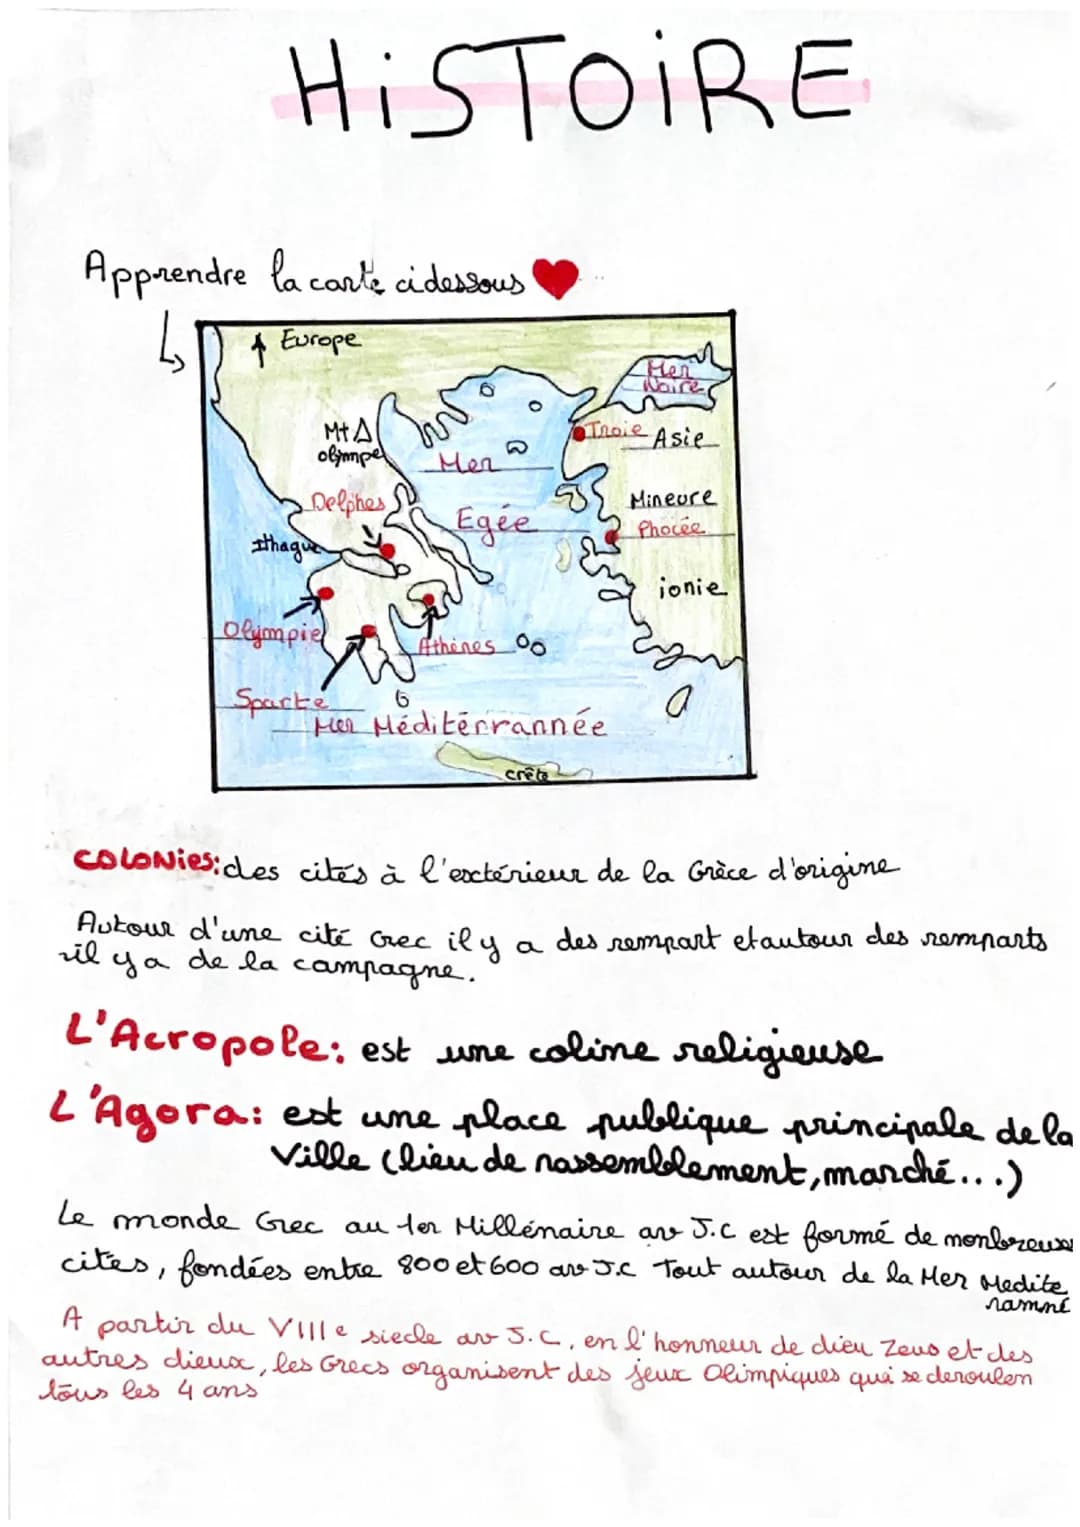 HiSTOiRE
Apprendre la carte cidessous
Europe
Mer
Noire
Mt
olympe
Troie
Asie
Mer
Delphes
Mineure
Egée
Phocée
Ithaque
ionie
Olympie
Athènes
Sparte
Mer Méditérrannée
crête
COLONiES: des cités à l'extérieur de la Grèce d'origine
Autour d'une cité Grec il y a des rempart et autour des remparts
il y a de la campagne.
L'Acropole: est une coline religieuse
L'Agora: est une place publique principale de la
Ville (lieu de rassemblement, marché...)
Le monde Grec au 1er Millénaire av J.C est formé de monbreuses
cités, fondées entre 800 et 600 av J.C Tout autour de la Mer Medite
ranné
A partir du VIIIe siecle av J.C, en l'honneur de dieu Zeus et des
autres dieux, les Grecs organisent des jeux Olimpiques qui se deroulen
tous les 4 ans